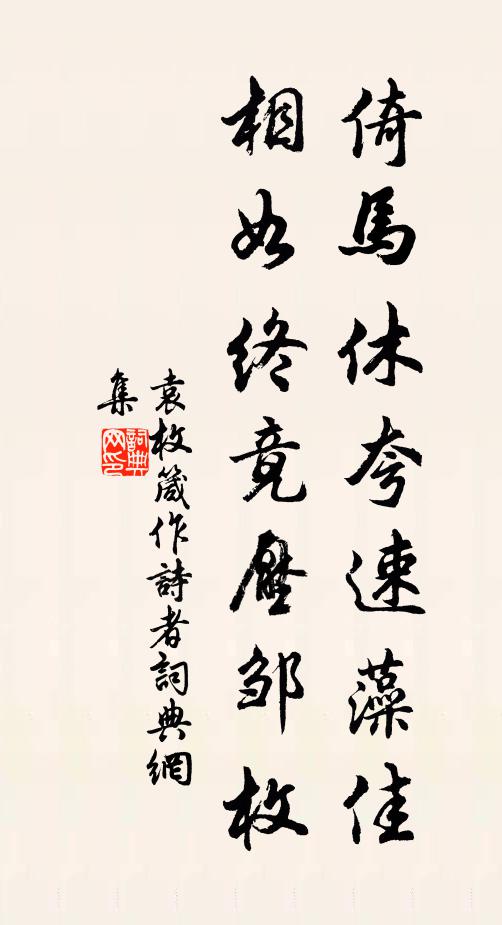 倚馬休夸速藻佳
相如終竟壓邹枚
袁枚箴作詩者詞典網
集
詞典網印